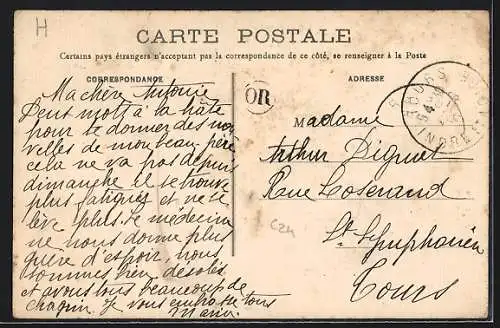 H
CARTE POSTALE
Certains pays étrangers n'acceptant pas la correspondance de ce côté, se renseigner à la Poste
CORRESPONDANCE
Ma chère
Deux mots à la hâte
pour te donner des nou
velles de mon beau père
cela ne va pas depuis
dimanche il se trouve
plus fatigué et ne se
lève plus. le médecin
ne nous donne plus
guère d'espoir, nous
sommes bien désolés
et avons tous beaucoup de
chagrin. Je vous embrasse tous
OR
ADRESSE
TOURS
INDRE
Madame
Arthur Diguet
Rue
St Symphorien
Tours
C24